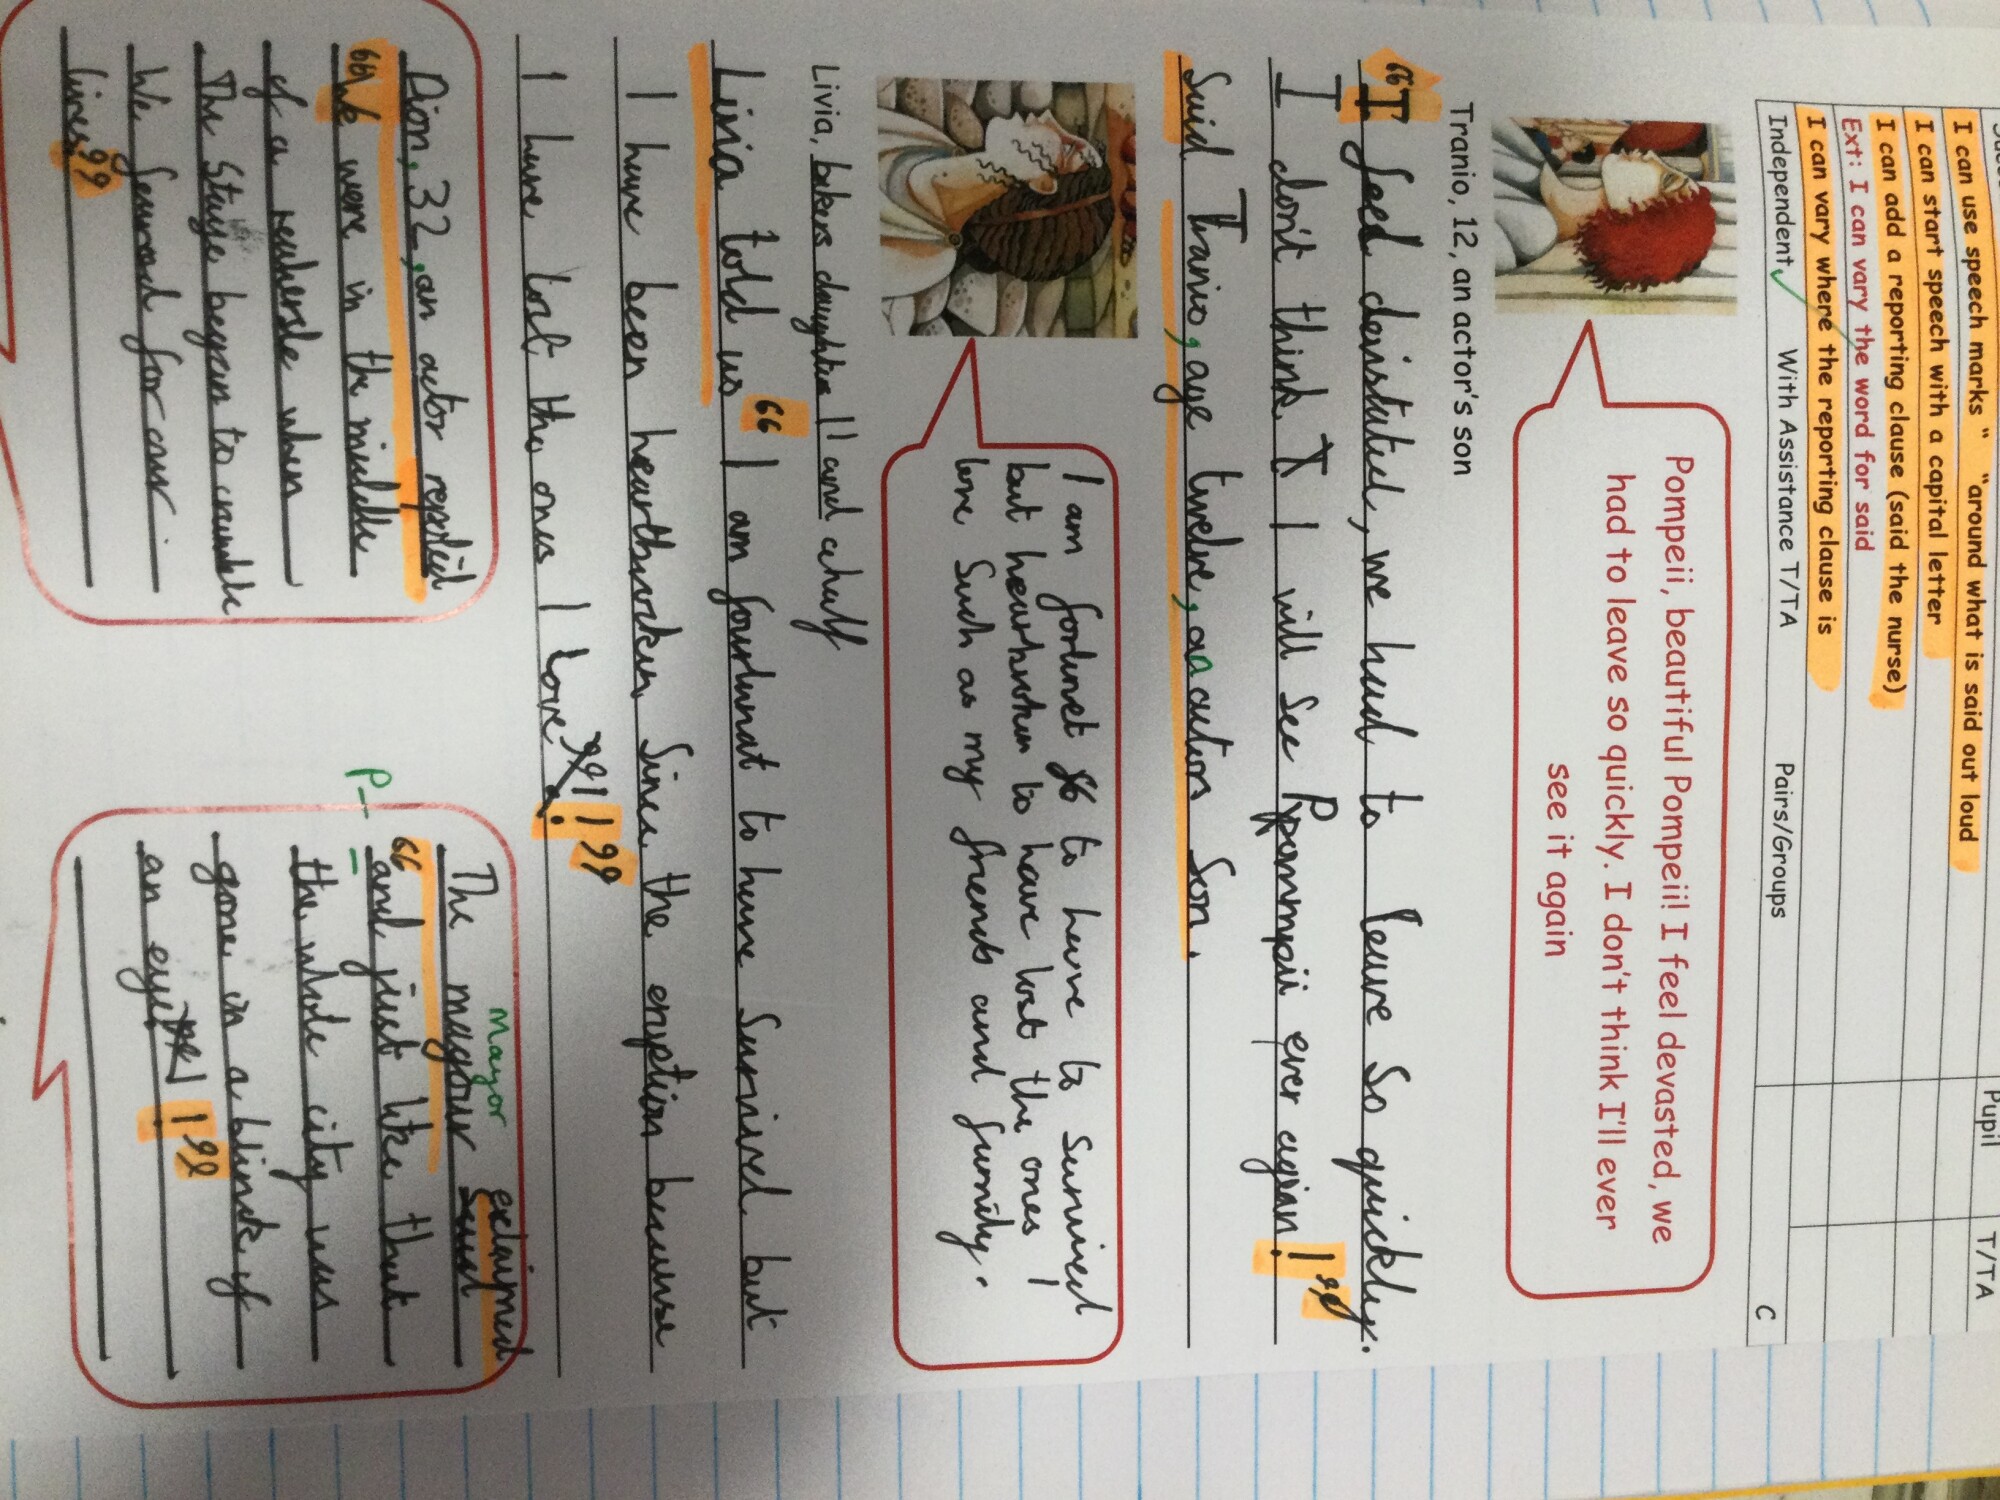 I can use speech marks “ “around what is said out loud
I can start speech with a capital letter
I can add a reporting clause (said the nurse)
Ext: I can vary the word for said
I can vary where the reporting clause is
Pupil T/TA
Independent ✓ With Assistance T/TA Pairs/Groups C
Pompeii, beautiful Pompeii! I feel devasted, we
had to leave so quickly. I don't think I'll ever
see it again
Tranio, 12, an actor's son
“I feel devistated, we had to leave so quickly.
I don't think I will see Pompmpeii ever agian!”
Said Tranio, age twelve, an actors Son.
I am fortunet to have to Survived
but heartbroken to have lost the ones I
love Such as my friends and family.
Livia, bikers daughter 11 and ahalf
Livia told us “I am fourtunat to have Survived but
I have been hearthbrocken Since the eruption becuase
I have lost the ones I Love!”
Dion, 32, an actor reported
“We were in the middle
of a reuherstle when
The Stage began to crumble
We feared for our
lives”
mayor exlaipmed
The mayour
P
“and just like that
the whole city was
gone in a blink of
an eye!”